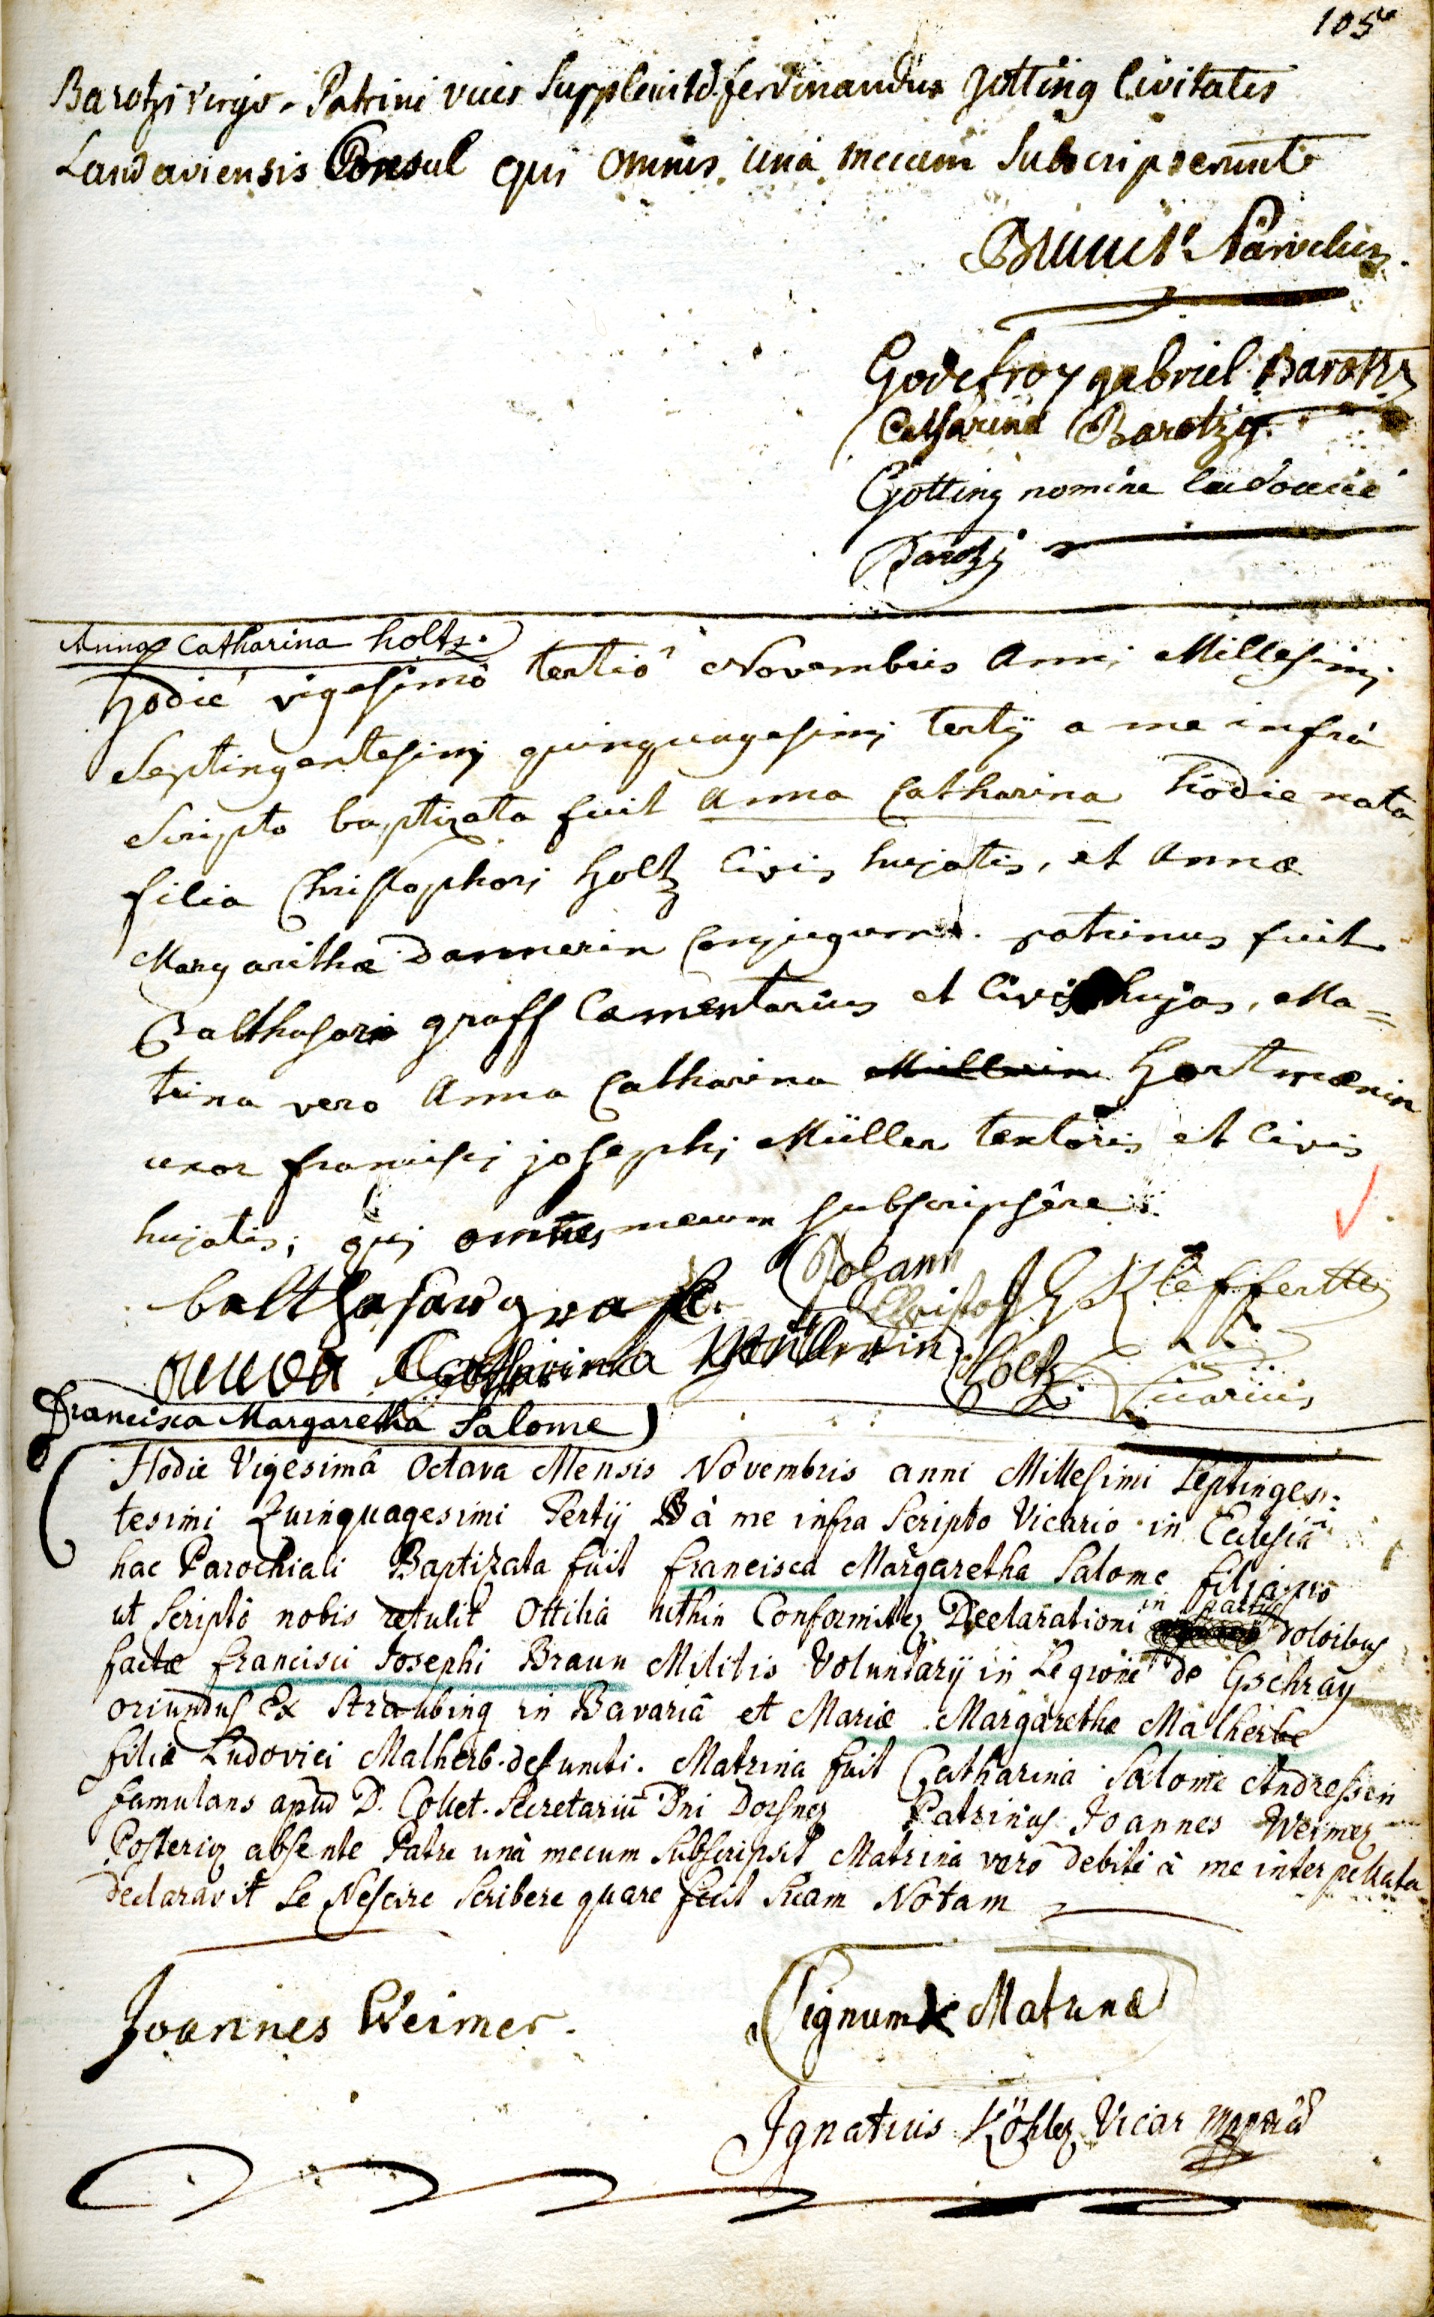 105
Barotzi virgo. Patrini vices Supplevit D. ferdinandus Gotting Civitatis
Landaviensis Consul qui omnes unà mecum Subscripserunt
Godefroy gabriel Barotzy
Catharina Barotzy
Gotting nomine ludovici
Barotzj
Anna Catharina holtz.
hodie vigesimo tertio Novembris Anni Millesimi
Septingentesimj quinquagesimj tertij a me infrà
Scripto baptizata fuit Anna Catharina hodie nata
filia Christophorj holtz Civis hujatis, et Annæ
Margarithæ Dannerin Conjugum. patrinus fuit
Balthasar graff Cæmentarius et Civis hujas, Ma=
trina vero Anna Catharina Müllerin Hartmænin
uxor francisci josephj Müller textoris et Civis
hujatis; quj omnes mecum subscripsêre.
balthasar graf. Johann
Christof
Catharina Müllerin Holtz Vicarius
Francisca Margaretha Salome
Hodie Vigesimâ Octava Mensis Novembris anni Millesimi Septingen:
tesimi Quinquagesimi Tertij à me infra Scripto Vicario in Ecclesiâ
hac Parochiali Baptizata fuit francisca Margaretha Salome filia pro
ut Scripto nobis retulit Ottilia Conformiter Declarationi in partus doloribus
factæ francisci Josephi Braun Militis Voluntarij in Legione de Gschray
oriundus Ex Straubing in Bavariâ et Mariæ Margarethæ Malherbe
filiæ Ludovici Malherb. defuncti. Matrina fuit Catharina Salome Andressen
famulans apud D. Collet. Secretariū Dni Dorsner Patrinus Joannes Weimer
Posterior absente Patre unà mecum Subscripsit Matrina verò debitè à me interpellata
declaravit Se Nescire Scribere quare fecit Suam Notam
Joannes Weimer. Signum X Matrinæ
Ignatius Köhler Vicar mppriâ